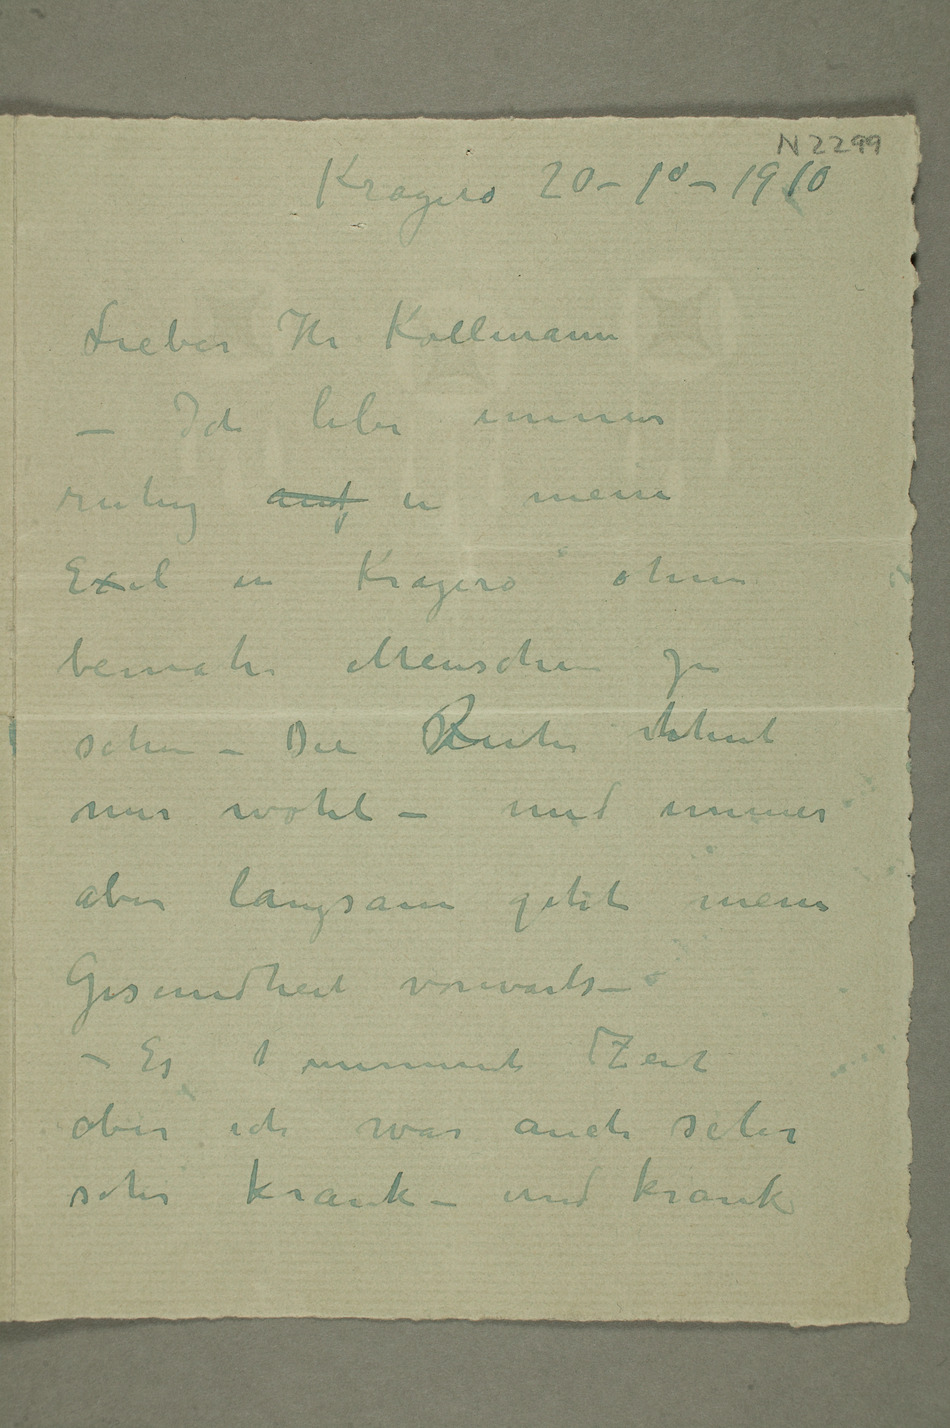 N 2299
Kragerø 20–10–1910
Lieber Hr Kollmann
– Ich lebe immer
ruhig auf in mein
Exil in Kragerø ohne
beinahe Menschen zu
sehen – Die Ruhe thut
mir wohl – und immer
aber langsam geht meine
Gesundheit vorwärts –
– Es nimmt Zeit
aber ich war auch sehr
sehr krank – und krank